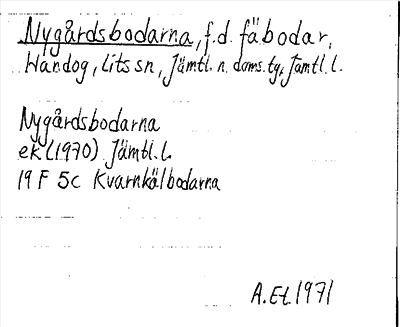 Nygårdsbodarna, f.d. fäbodar,
Handog, Lits sn, Jämtl. n. doms. tg, Jämtl. l.
Nygårdsbodarna
ek (1970) Jämtl. l.
19 F 5c Kvarnkälbodarna
A. Et. 1971